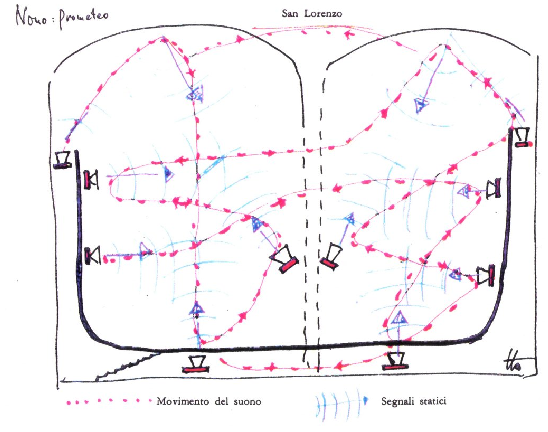 Nono: prometeo
San Lorenzo
Movimento del suono
Segnali statici